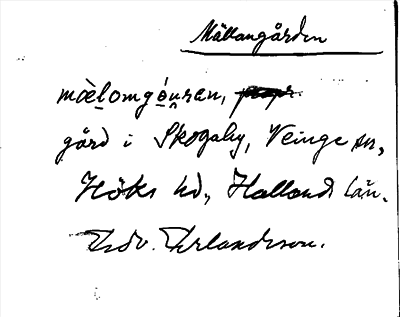 Mällangården
mœ̀lomgǫ́u̯ran,
gård i Skogaby, Veinge sn,
Höks hd, Hallands län.
Edv. Erlandsson.